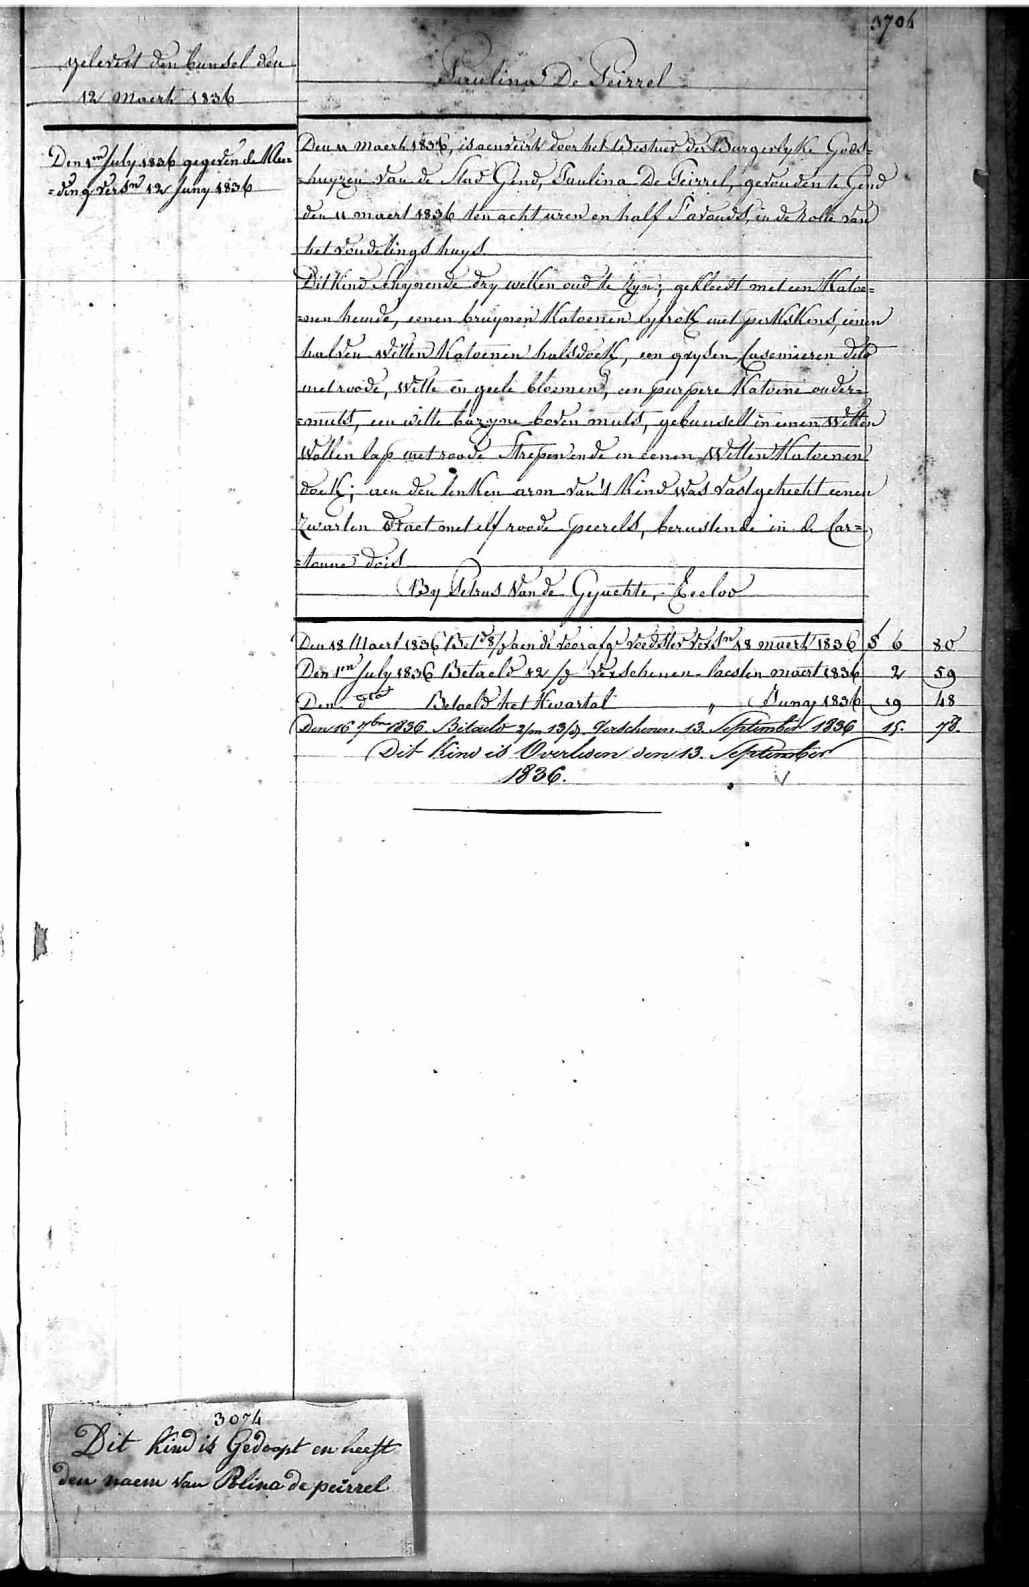 3704
gelevert den bundel den
12 Maert 1836
Paulina De Peirrel
Den 1en July 1836 gegeven de Klee-
=ding versn 12 Juny 1836
Den 11 maert 1836, is aenveirt door het Bestuer der Burgerlyke Gods-
-huyzen van de Stad Gend, Paulina De Peirrel, gevonden te Gend
den 11 maert 1836 ten acht uren en half s'avonds, in de rolle van
het vondelings huys.
Dit Kind schynende dry weken oud te zyn; gekleedt met een Katoe=
=nen hemde, eenen bruynen Katoenen lyfrok met perkskens, eenen
halven witten Katoenen halsdoek, een grysen Casemieren
met roode, witte en geele bloemen, een purpere Katoene onder=
=muts, een witte bazyne boven muts, gebunselt in eenen Witten
Wollen lap met roode Strepen ende in eenen Witten Katoenen
doek; aen den linken arm van 't Kind was vastgehecht eenen
Zwarten draet met elf roode peerels, berustende in de Car=
=tonne dois
By Petrus Van de Gejuchte, Eecloo
Den 18 Maert 1836 Betd aen de voorafge voedster versn 18 maert 1836 f 6 80
Den 1en July 1836 Betaeld 12 verschenen laesten maert 1836 2 59
Den do Betaeld het Kwartal " Juny 1836 19 48
Den 16 7bre 1836 Betaeld 2/m 13/d Verschenen 13. September 1836 15. 78.
Dit Kind is Overleden den 13. September
1836.
3074
Dit kind is Gedoopt en heeft
den naem van Polina de peirrel